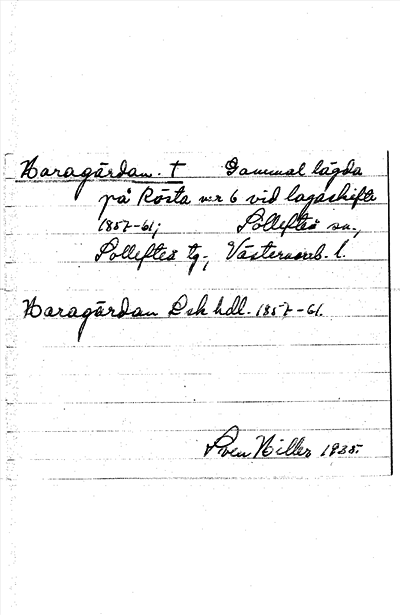 Haragårdan. † Gammal lägda
på Rösta n:r 6 vid lagaskifte
1857-61; Sollefteå sn.,
Sollefteå tg., Västernorrl. l.
Haragårdan Lsk hdl. 1857-61.
Sven Hiller 1935.